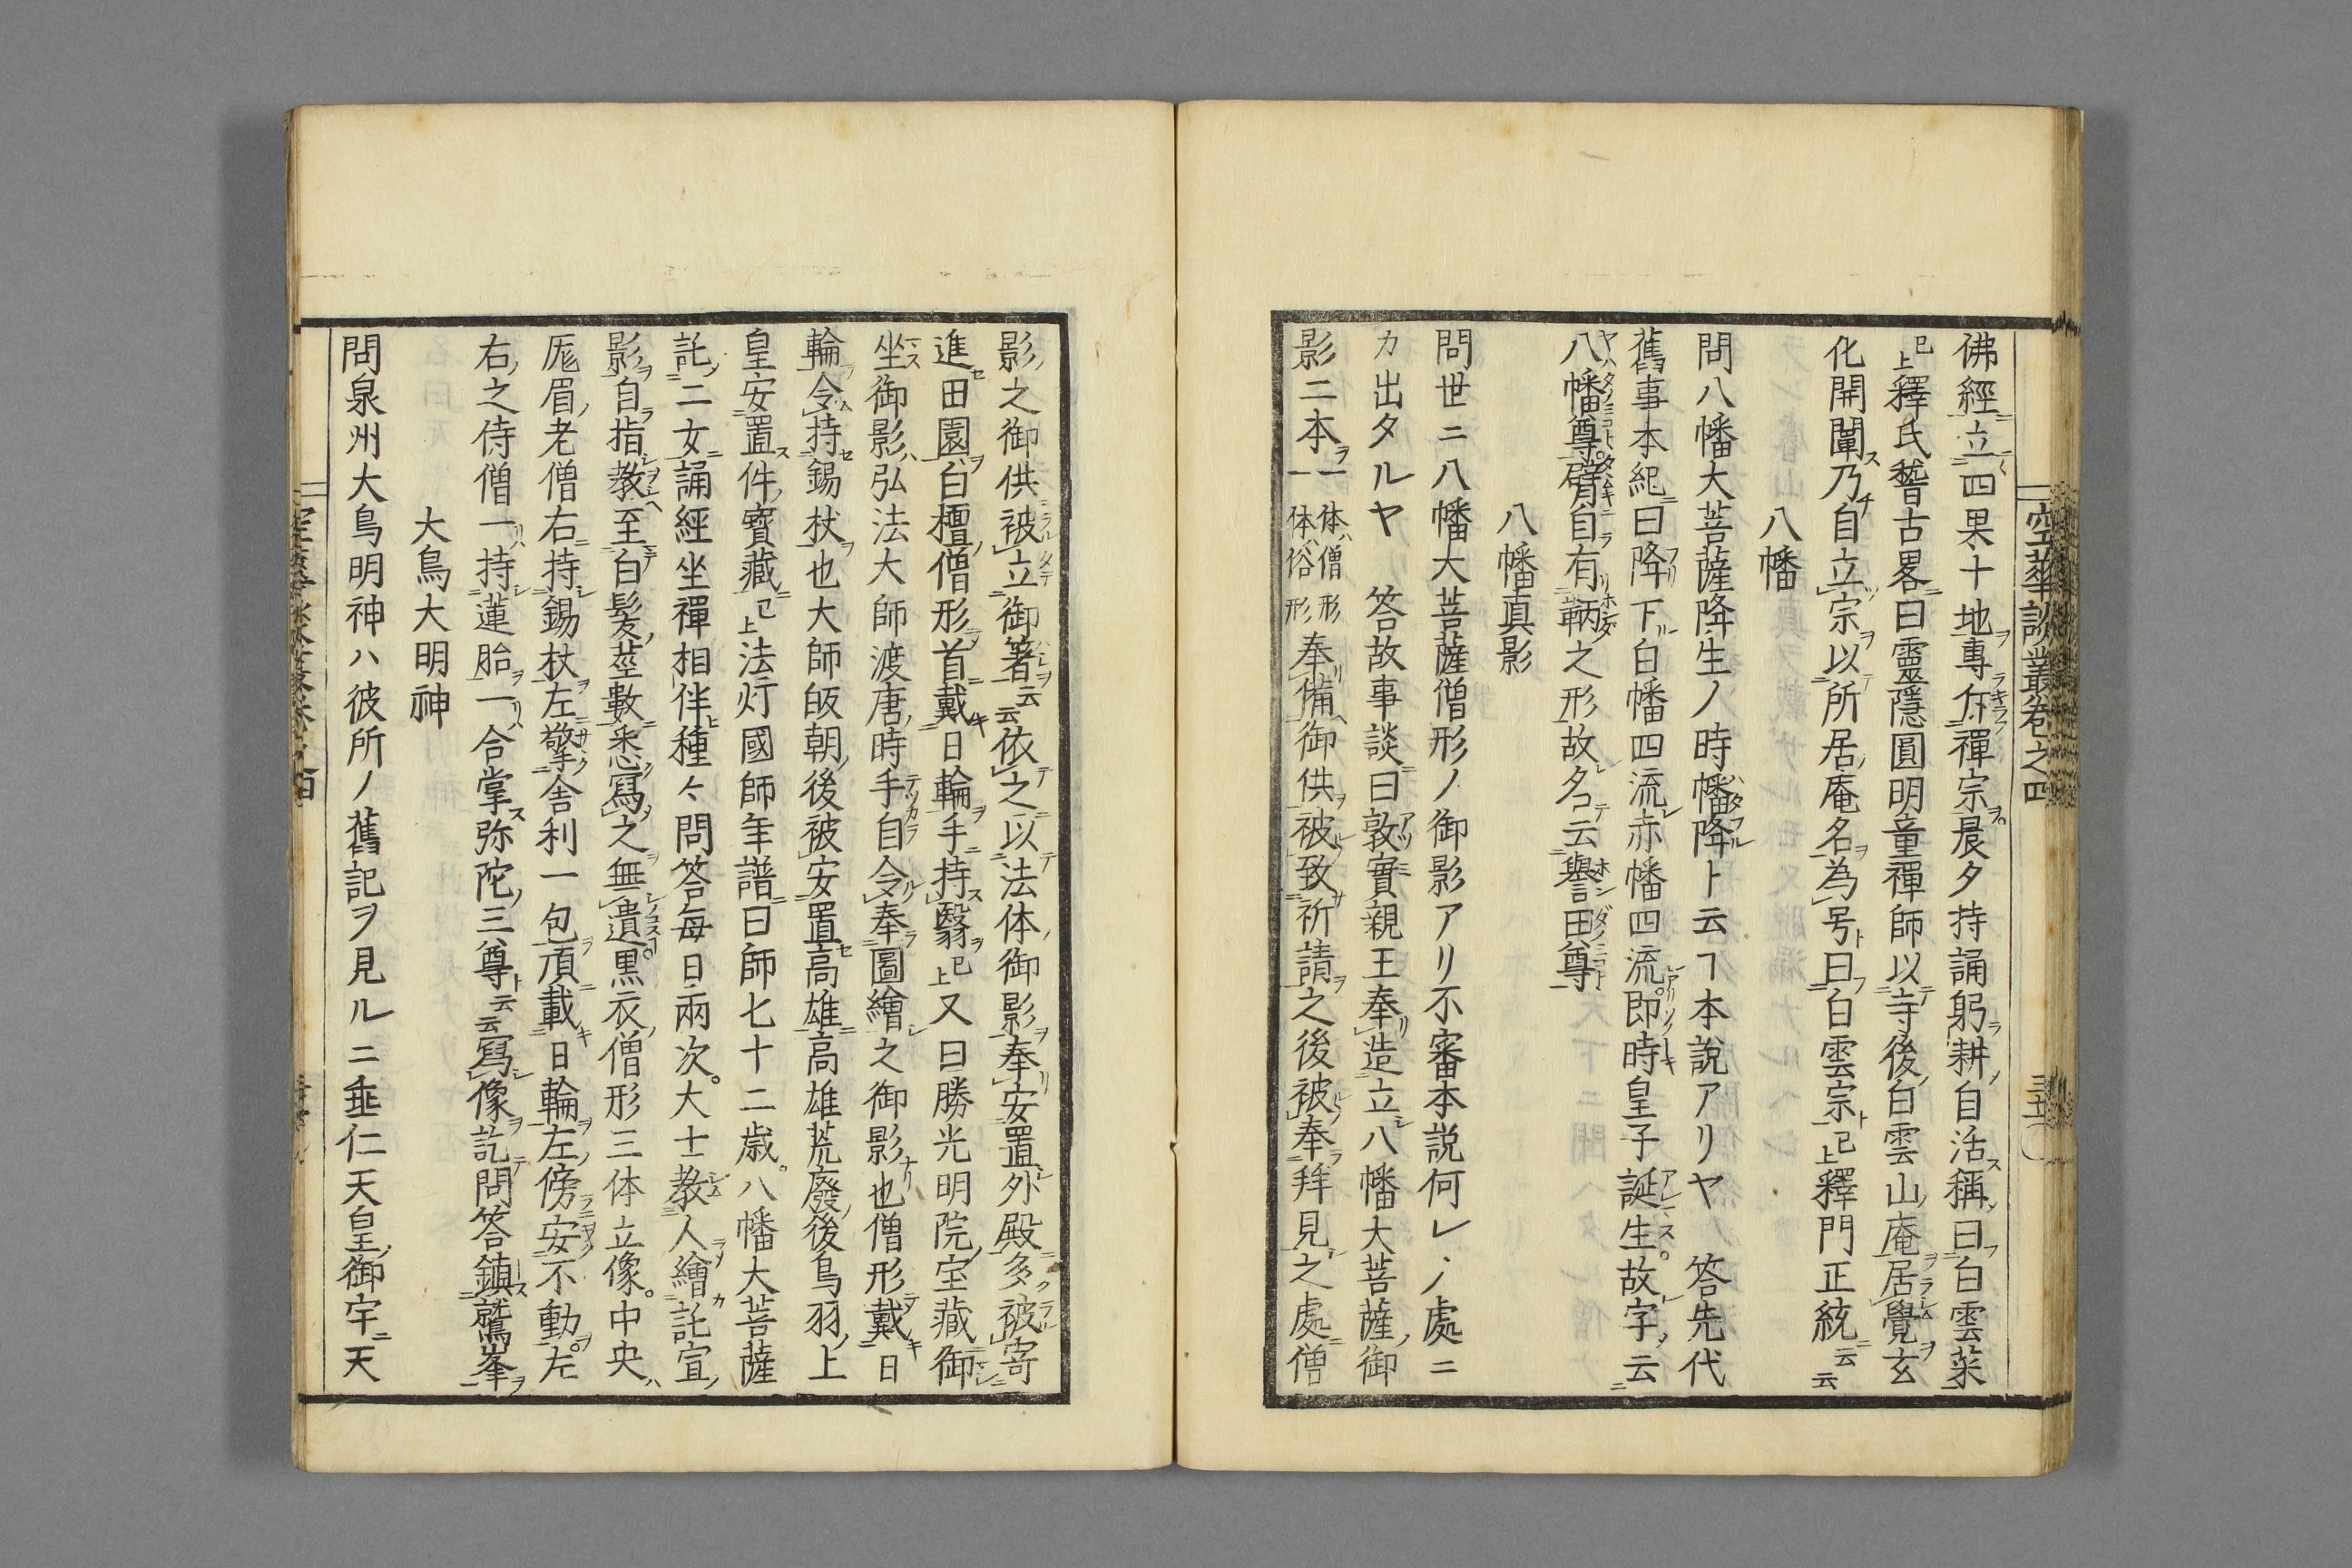 空華談叢卷之四
佛經立四果十地專斥禪宗晨夕持誦躬耕自活稱曰白雲菜
已上釋氏𥡴古畧曰靈隱圓明童禪師以寺後白雲山庵居覺玄
化開闡乃自立宗以所居庵名為号曰白雲宗已上釋門正統云云
八幡
問八幡大菩薩降生ノ時幡降ト云ヿ本說アリヤ 答先代
舊事本紀曰降下白幡四流赤幡四流即時皇子誕生故字云
八幡尊臂自有鞆之形故名云譽田尊
八幡真影
問世ニ八幡大菩薩僧形ノ御影アリ不審本説何レノ處ニ
カ出タルヤ 答故事談曰敦實親王奉造立八幡大菩薩御
影二本一体僧形一体俗形奉備御供被致祈請之後被奉拜見之處僧
影之御供被立御箸云云依之以法体御影奉安置外殿多被寄
進田園白檀僧形首戴日輪手持翳已上又曰勝光明院宝藏御
坐御影弘法大師渡唐時手自令奉圖繪之御影也僧形戴日
輪令持錫杖也大師皈朝後被安置高雄高雄荒廢後鳥羽上
皇安置件寶藏已上法灯國師年譜曰師七十二歳八幡大菩薩
託二女誦經坐禪相伴種々問答每日兩次大士教人繪託宣
影自指教至白髮莖數悉寫之無遺黒衣僧形三体立像中央
厖眉老僧右持錫杖左擎舍利一包頂載日輪左傍安不動左
右之侍僧一持蓮胎一合掌弥陀三尊云云寫像訖問答鎮鷲峯
大鳥大明神
問泉州大鳥明神ハ彼所ノ舊記ヲ見ルニ垂仁天皇御宇ニ天